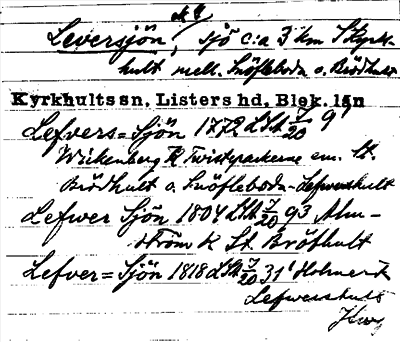 Leversjön, sjö c:a 3 km S Kyrk-
hult mell. Snöfleboda o. Brödhult
Kyrkhults sn, Listers hd, Blek. län
Lefvers=Sjön 1772 LSA J/20 9
Wickenberg K Twistyrackerne em. St.
Brödhult o. Snöfleboda-Lefwershult
Lefwer Sjön 1804 LSA J/20 93 Alm-
ström K St. Bröthult
Lefver=Sjön 1818 LSA J/20 31 Holmer K
Lefwershult